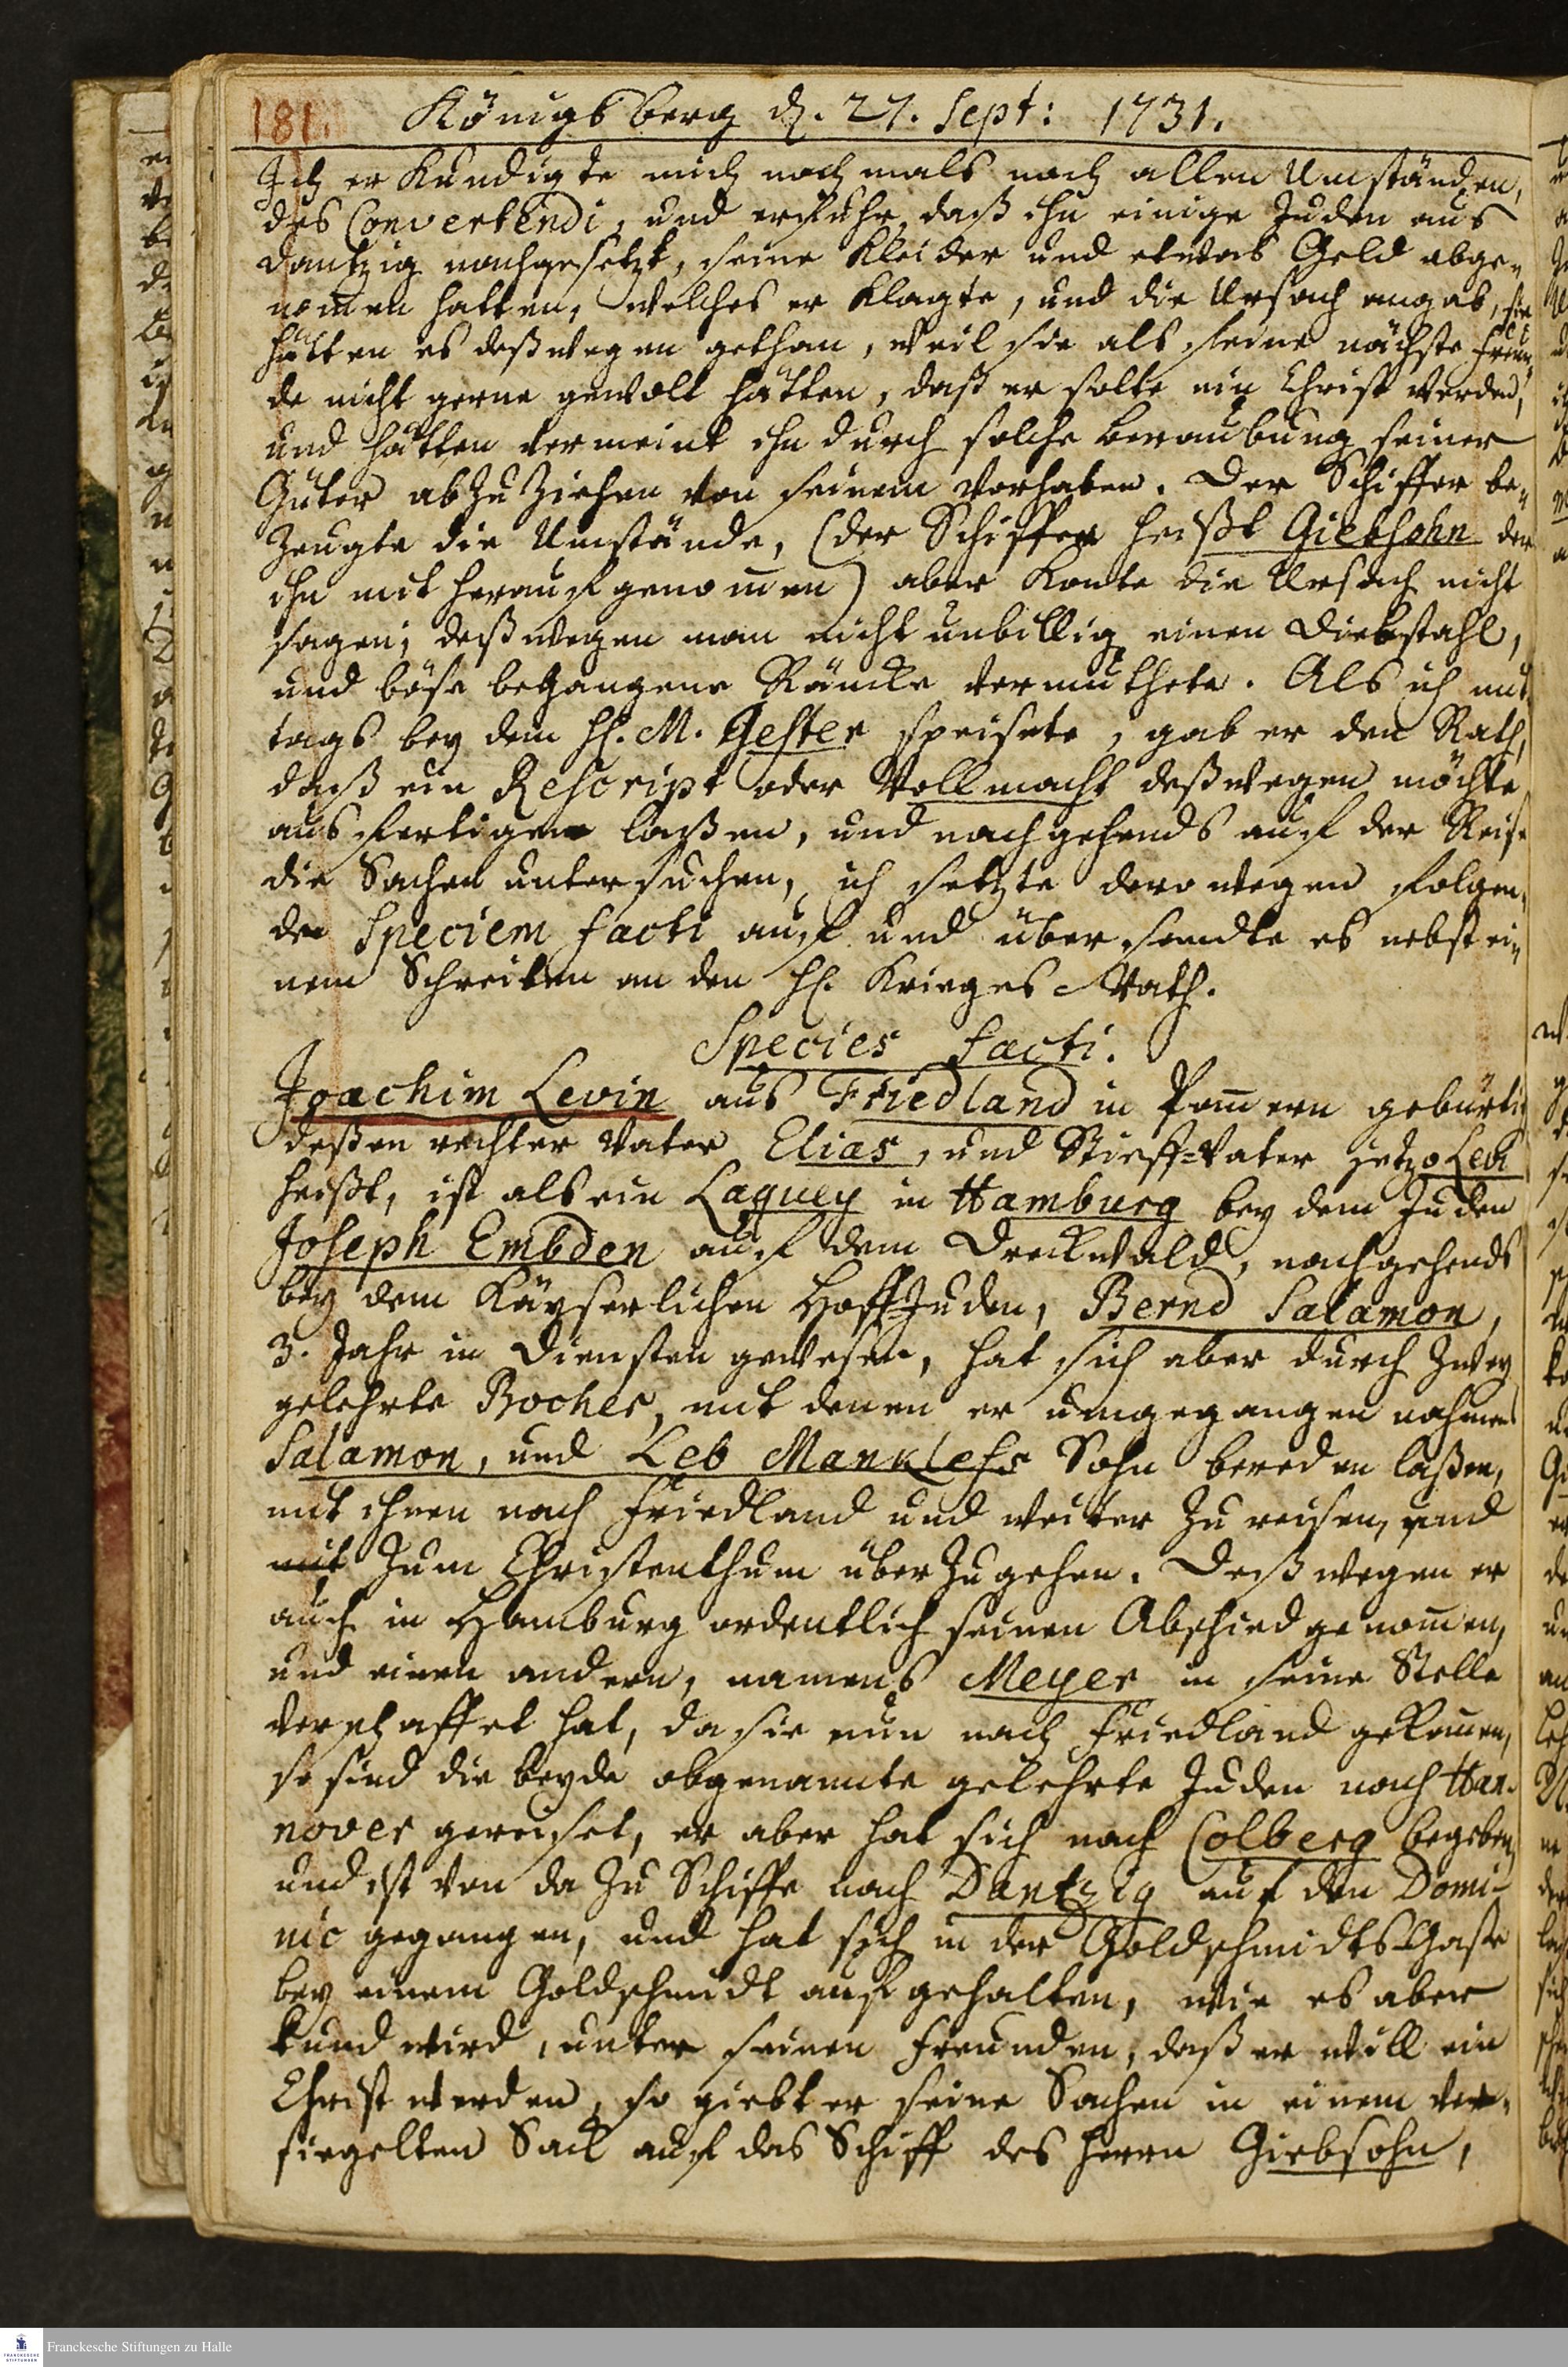 181. Königsberg d. 27. Sept: 1731.
Ich erkundigte mich nochmals nach allen Umständen,
des Convertendi, und erfuhr, daß ihn einige Juden aus
Dantzig nachgesetzt, seine Kleider und etwas Geld abge-
nom̄en hatten, welches er klagte, und die Ursach angab, sie
hätten es deßwegen gethan, weil sie als seine nächste Freun-
de nicht gerne gewolt hätten, daß er solte ein Christ werden,
und hätten vermeint ihn durch solche Beraubung seiner
Güter abzuziehen von seinem Vorhaben. Der Schiffer be-
zeugte die Umstände, (der Schiffer heißt Giebsohn der
ihn mit herauf genom̄en) aber konte die Ursach nicht
sagen; deßwegen man nicht unbillig einen Diebstahl,
und böse begangene Räncke vermuthete. Als ich mit-
tags bey dem H. M. Gester speisete, gab er den Rath,
daß ein Rescript oder Vollmacht deßwegen möchte
ausfertigen laßen, und nachgehends auf der Reise
die Sachen untersuchen, ich setzte derowegen folgen-
de Speciem facti auf und übersandte es nebst ei-
nem Schreiben an den H. Krieges Rath.
Species facti.
Joachim Levin aus Friedland in Pom̄ern gebürtig
deßen rechter Vater Elias, und Stieff-Vater jetzo Levi
heißt, ist als ein Laquey in Hamburg bey dem Juden
Joseph Embden auf dem Dreckwald, nachgehends
bey dem Käyserlichen Hoff-Juden, Bernd Salamon,
3. Jahr in Diensten gewesen, hat sich aber durch zwey
gelehrte Bocher, mit denen er umgegangen nahmens
Salamon, und Leb Manklefs Sohn bereden laßen,
mit ihnen nach Friedland und weiter zu reisen, und
mit zum Christenthum überzugehen. Deßwegen er
auch in Hamburg ordentlich seinen Abschied genom̄en,
und einen andern, namens Meyer in seine Stelle
verschaffet hat, da sie nun nach Friedland gekom̄en,
so sind die beyde obgenannte gelehrte Juden nach Han-
nover gereiset, er aber hat sich nach Colberg begeben,
und ist von da zu Schiffe nach Dantzig auf den Domi-
nic gegangen, und hat sich in der Goldschmidts-Gaße
bey einem Goldschmidt aufgehalten, wie es aber
kund wird, unter seinen Freunden, daß er will ein
Christ werden, so giebt er seine Sachen in einem ver-
siegelten Sack auf das Schiff des Herrn Giebsohn,
Franckesche Stiftungen zu Halle